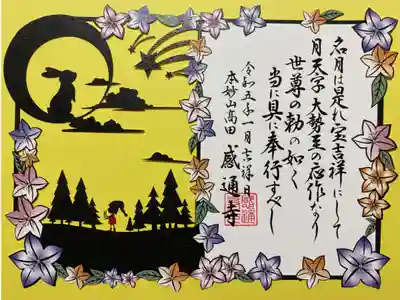 名月は是れ宝吉祥にして
月天子大勢至の応作なり
世尊の勅の如く
当に具に奉行すべし
令和五年一月吉祥日
本妙山高田 感通寺